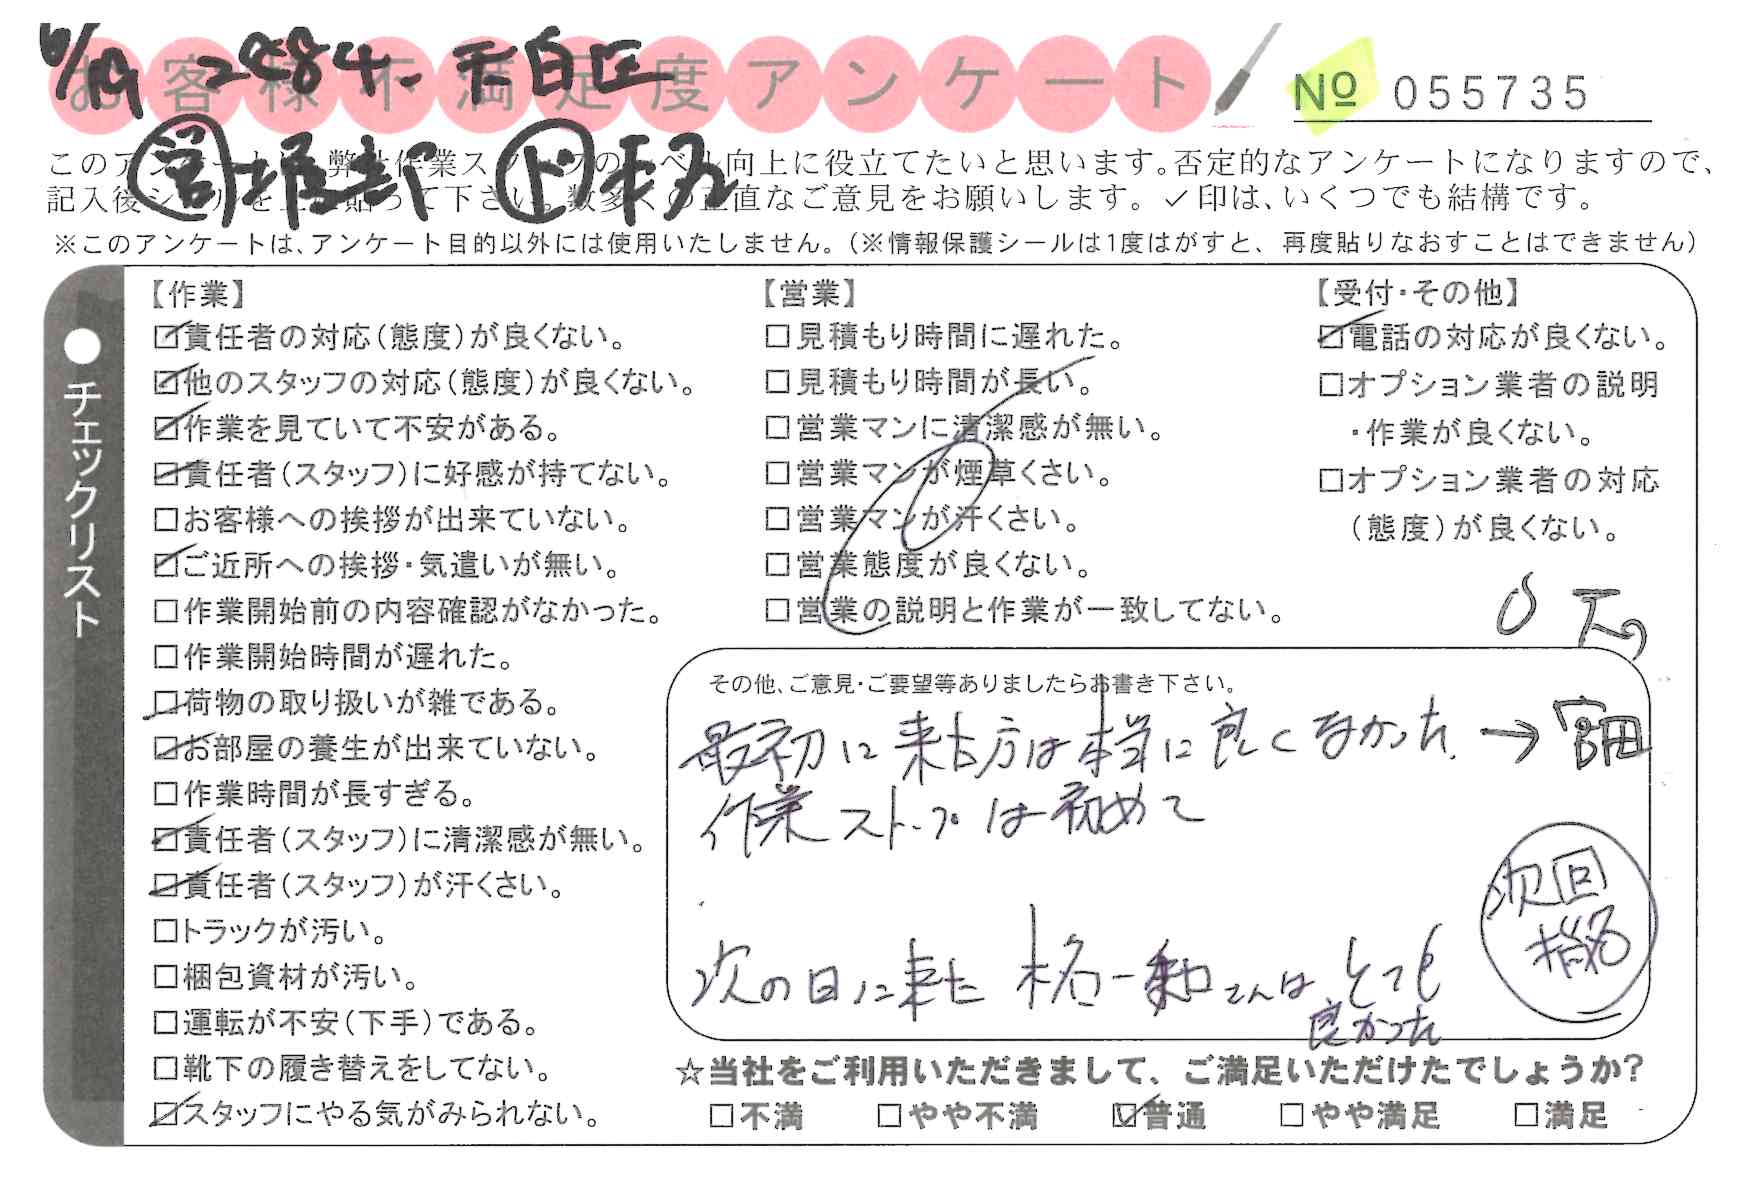 6/19 2484. 天白区
お客様不満足度アンケート
№ 055735
このアンケートは、弊社作業スタッフのレベル向上に役立てたいと思います。否定的なアンケートになりますので、
記入後シールを上に貼って下さい。数多くの正直なご意見をお願いします。✓印は、いくつでも結構です。
※このアンケートは、アンケート目的以外には使用いたしません。(※情報保護シールは1度はがすと、再度貼りなおすことはできません)
●チェックリスト
【作業】
☑責任者の対応(態度)が良くない。
☑他のスタッフの対応(態度)が良くない。
☑作業を見ていて不安がある。
☑責任者(スタッフ)に好感が持てない。
□お客様への挨拶が出来ていない。
☑ご近所への挨拶・気遣いが無い。
□作業開始前の内容確認がなかった。
□作業開始時間が遅れた。
☑荷物の取り扱いが雑である。
☑お部屋の養生が出来ていない。
□作業時間が長すぎる。
☑責任者(スタッフ)に清潔感が無い。
☑責任者(スタッフ)が汗くさい。
□トラックが汚い。
□梱包資材が汚い。
□運転が不安(下手)である。
□靴下の履き替えをしてない。
☑スタッフにやる気がみられない。
【営業】
□見積もり時間に遅れた。
□見積もり時間が長い。
□営業マンに清潔感が無い。
□営業マンが煙草くさい。
□営業マンが汗くさい。
□営業態度が良くない。
□営業の説明と作業が一致してない。
【受付・その他】
☑電話の対応が良くない。
□オプション業者の説明
・作業が良くない。
□オプション業者の対応
(態度)が良くない。
その他、ご意見・ご要望等ありましたらお書き下さい。
最初に来た方は本当に良くなかった →
作業ストップは初めて
次の日に来た
さんは とても
良かった
次回
☆当社をご利用いただきまして、ご満足いただけたでしょうか?
□不満 □やや不満 ☑普通 □やや満足 □満足